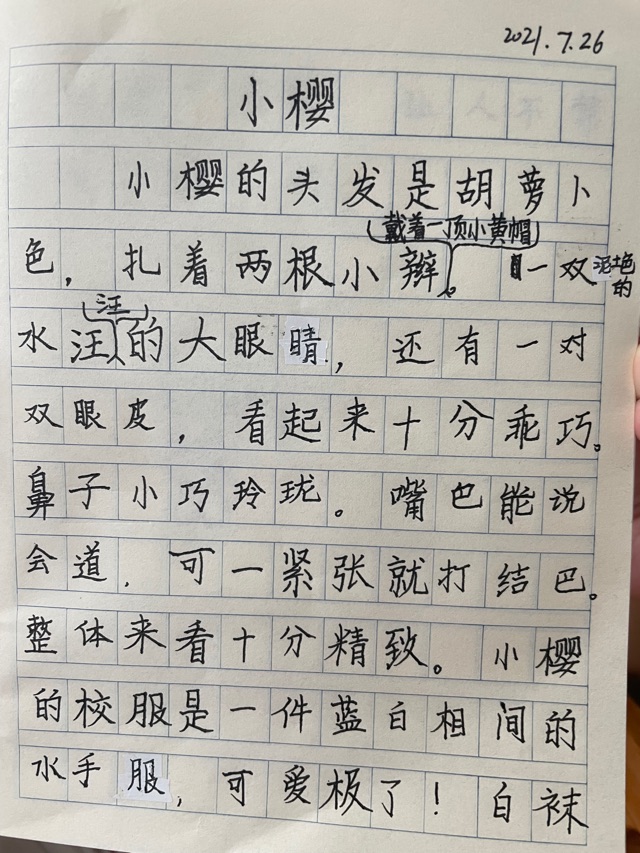 2021.7.26
小樱
小樱的头发是胡萝卜
戴着一顶小黄帽
色，扎着两根小辫。一双泥土色的
汪
水汪的大眼睛，还有一对
双眼皮，看起来十分乖巧。
鼻子小巧玲珑。嘴巴能说
会道，可一紧张就打结巴。
整体来看十分精致。小樱
的校服是一件蓝白相间的
水手服，可爱极了！白袜